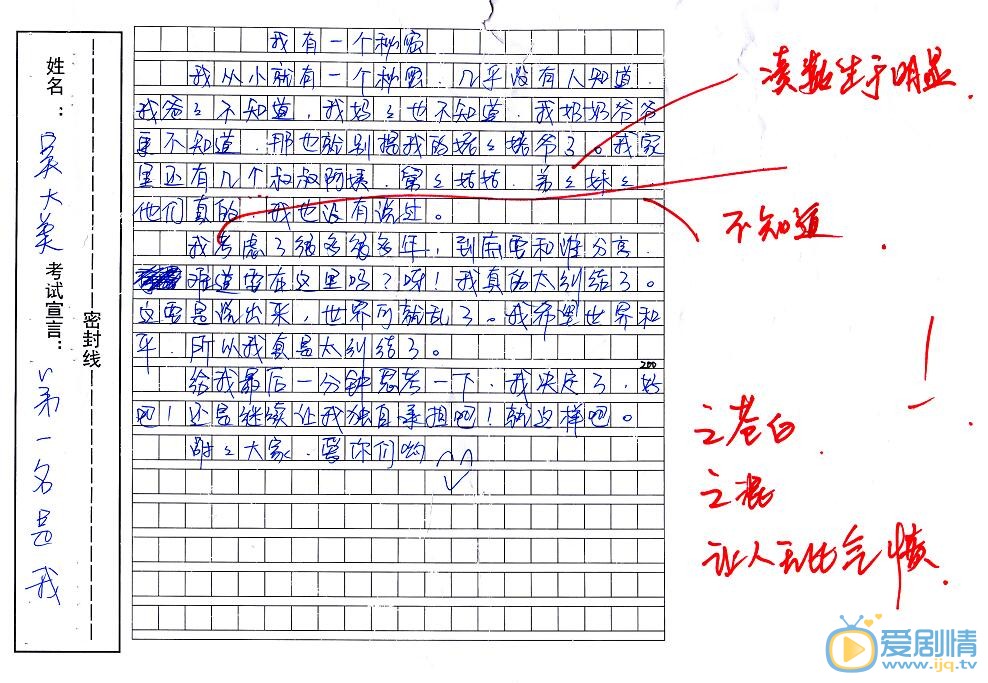 姓名：
吴大美
考试宣言：
第一名是我
密封线
我有一个秘密
我从小就有一个秘密．几乎没有人知道．
我爸々不知道，我妈々也不知道．我奶奶爷爷
更不知道．那也就别提我的姥々姥爷了。我家
里还有几个叔叔阿姨．舅々姑姑．弟々妹々
他们真的．我也没有说过。
我考虑了很多很多年，到底要和谁分享．
难道要在这里吗？呀！我真的太纠结了。
这要是说出来，世界可就乱了。我希望世界和
平．所以我真是太纠结了。
200
给我最后一分钟思考一下．我决定了，好
吧！还是继续让我独自承担吧！就这样吧。
谢々大家．爱你们哟
凑数过于明显．
不知道．
之苍白．
之极
让人无比气愤．
爱剧情
www.ijq.tv